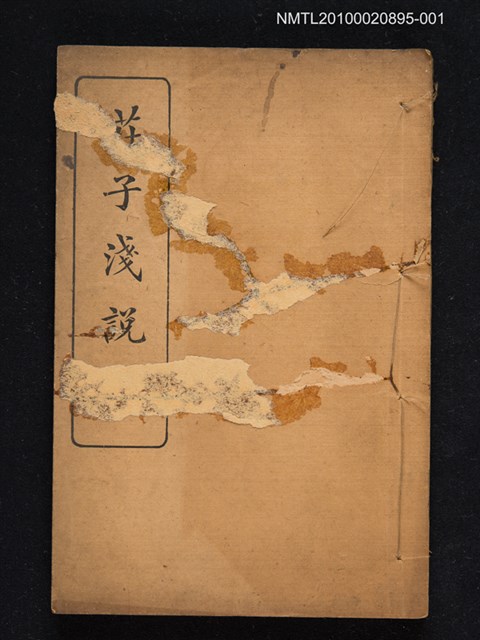 NMTL20100020895-001
莊子淺說